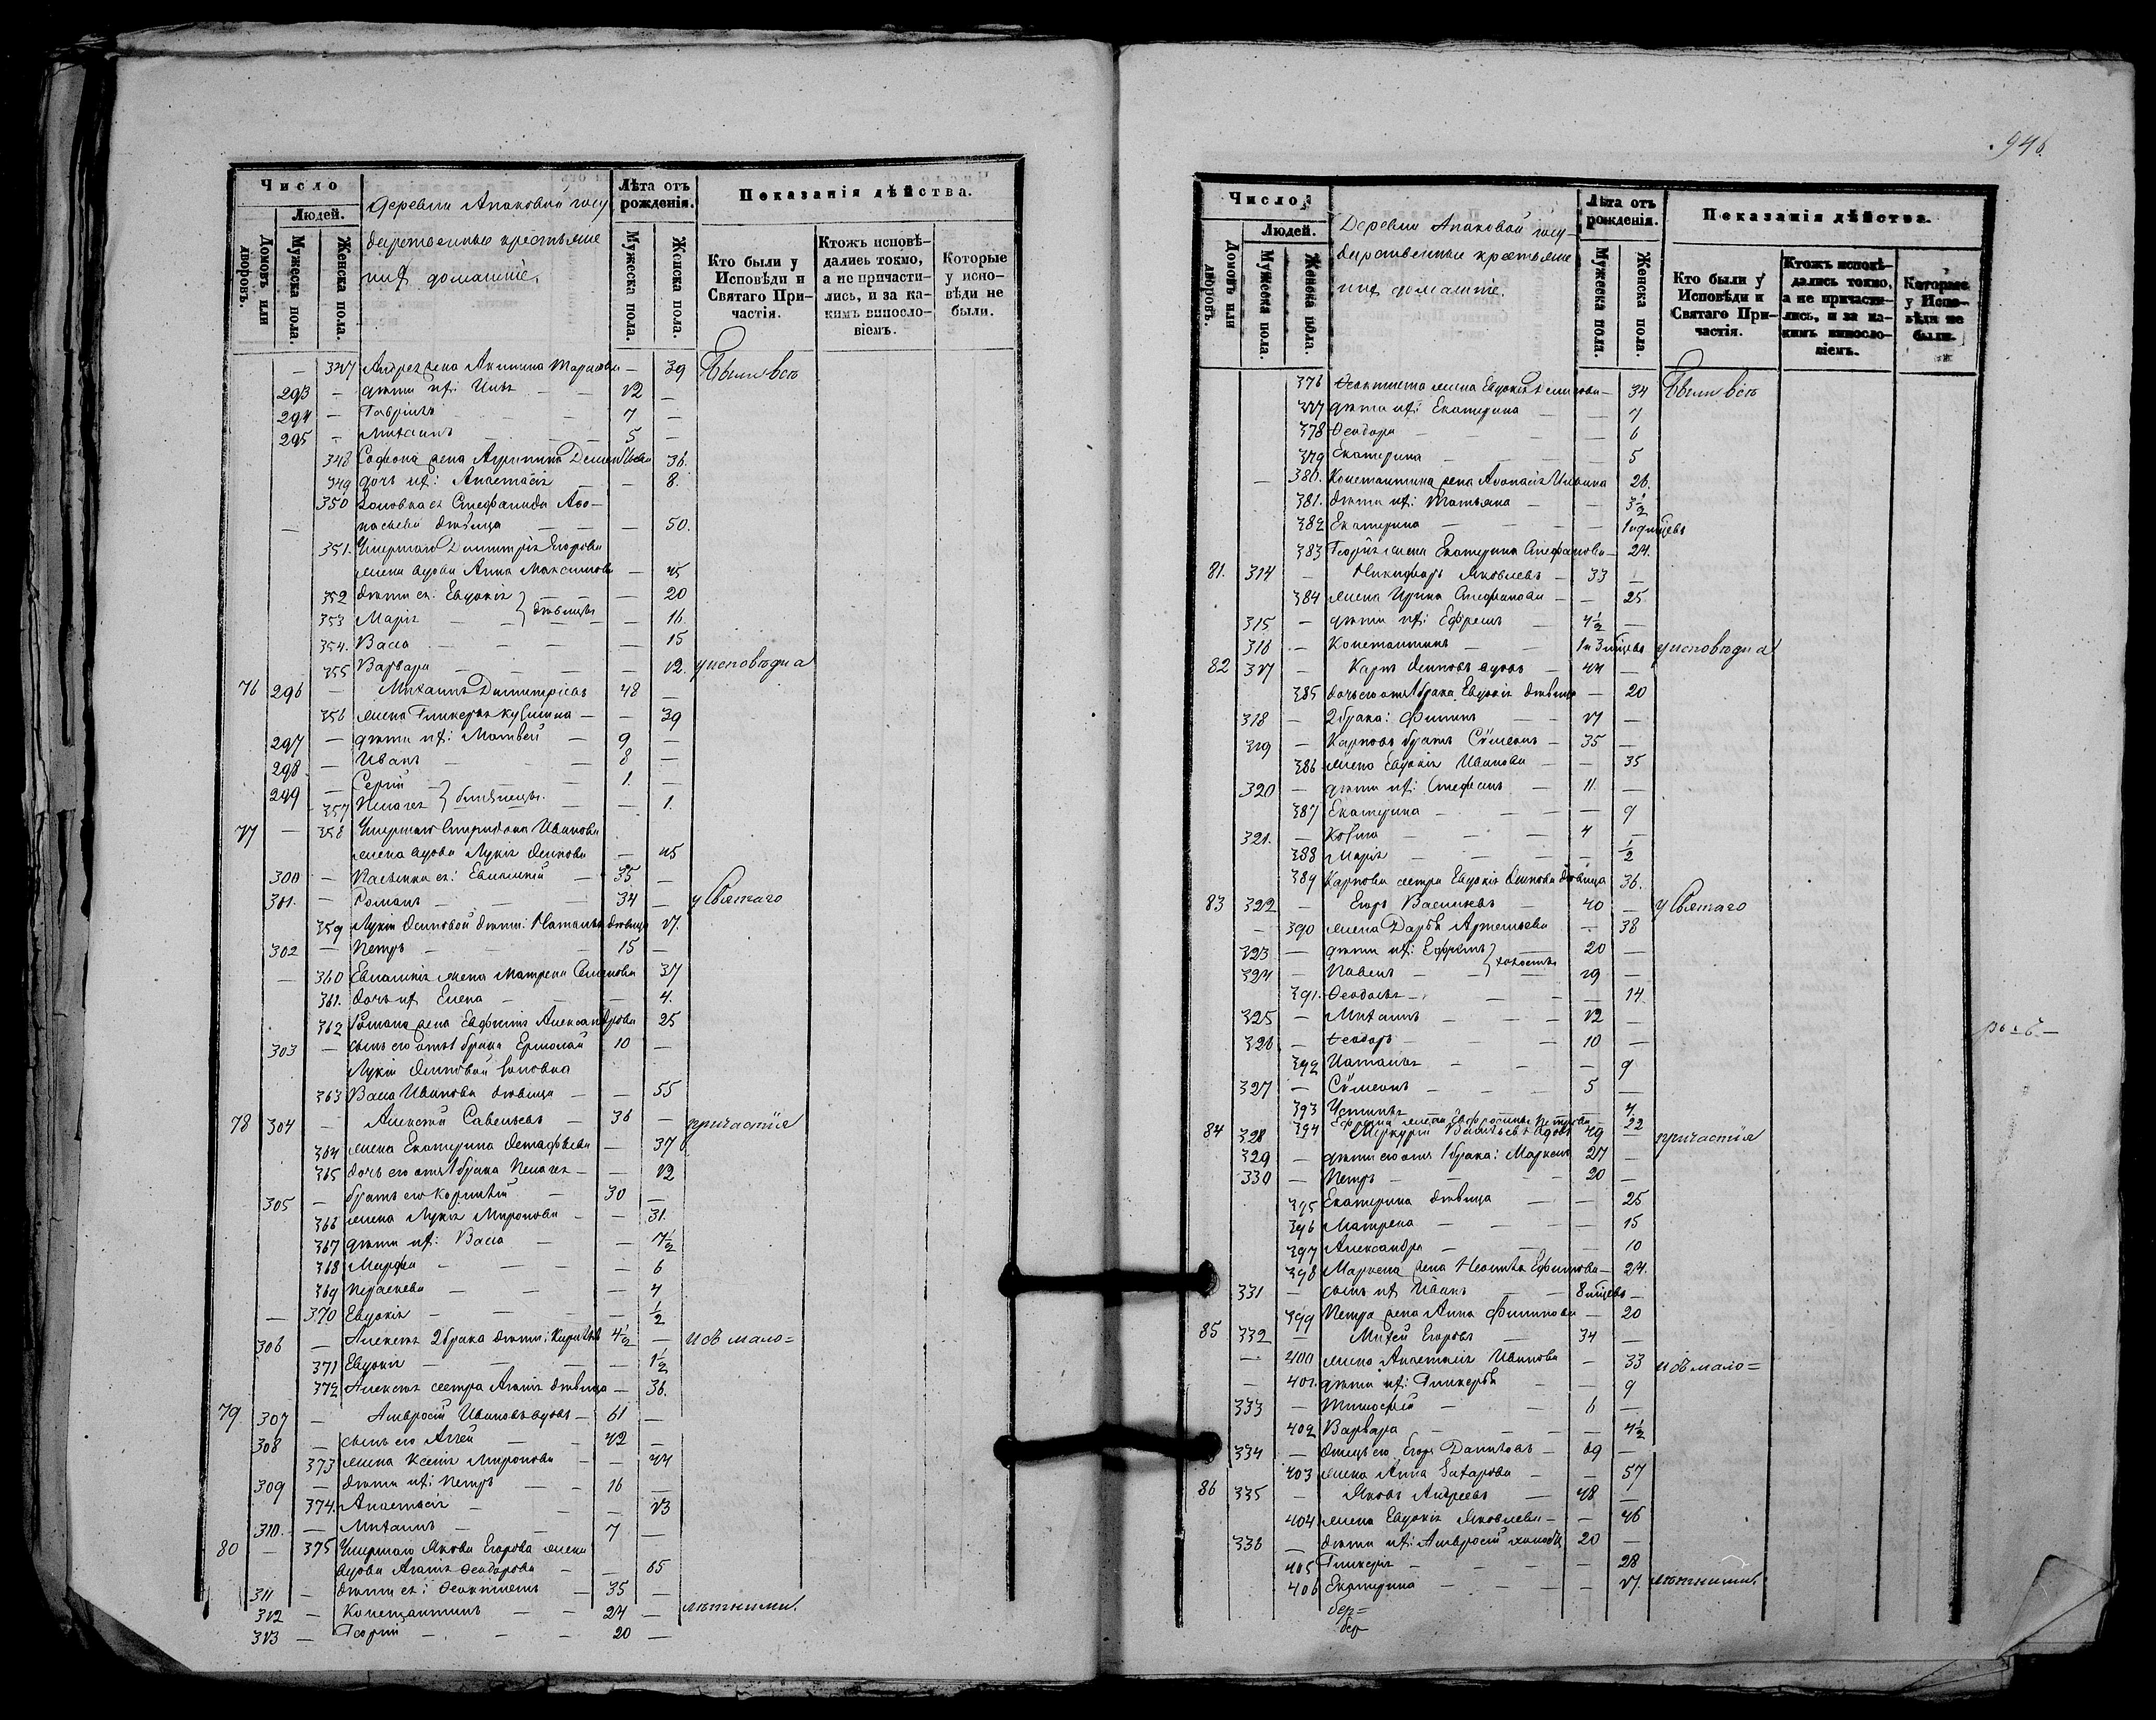 Число
Людей.
Домовъ или дворовъ.
Мужеска пола.
Женска пола.
Деревни Апаковой госу
дарственные крестьяне
ихъ домашніе.
Лѣта отъ рожденія.
Мужеска пола.
Женска пола.
Показанія дѣйства.
Кто были у Исповѣди и Святаго Причастія.
Ктожъ исповѣдались токмо, а не причастились, и за какимъ винословіемъ.
Которые у исповѣди не были.
— 347 Андреева жена Акилина — 39 Были всѣ
293 — дѣти ихъ: Илья — 12 —
294 — Гавріилъ — 7 —
295 — Михаилъ — 5 —
348 Софона жена Агрипина 36.
349 дочь ихъ: Анастасія — 8.
350 Золовка ея Стефанида Аѳо-
— насьева дѣвица — 50.
351. Умершаго Димитрія Егорова
жена вдова Анна Максимова — 45
352 дѣти ея: Евдокія — 20
353 Марія } дѣвицы — 16.
354. Васса — 15
355 Варвара — 12. у исповѣди и
76 296 — Михаилъ Димитріевъ 48 —
356 жена Гликерія Кузмина — 39
297 — дѣти ихъ: Матвей — 9 —
298 — Иванъ — 8 —
299 — Сергій — 1. —
357 Пелагея } близнецы — 1.
77 — 358 Умершаго Спиридона Иванова
жена вдова Лукія Осипова — 45
300 — Пасынки ея: Евлампій — 35 —
301. — Романъ — 34 — у Святаго
359 Лукіи Осиповой дѣти: Наталья дѣвица 17.
302 — Петръ — 15 —
— 360 Евлампія жена Матрена Семенова 37
361. дочь ихъ Елена — 4.
362 Романа жена Евфимія Александрова 25
303 — сынъ его отъ 1 брака Ермолай 10 —
Лукіи Осиповой золовка
363 Васса Иванова дѣвица — 55
78 304 — Алексѣй Савельевъ — 36 — причастія
364 жена Екатерина Остафьева — 37
365 дочь его отъ 1 брака Пелагея — 12
305 — братъ его Корнилій — 30 —
366 жена Лукія Миронова — 31.
367 дѣти ихъ: Васса — 7½
368 Марфа — 6
369 Прасковья — 4
— 370 Евдокія — ½
306 — Алексѣя 2 брака дѣти: Кириллъ 4½ — и съ мало=
371 Евдокія — 1½
372 Алексѣя сестра Агапія дѣвица — 36.
79. 307 — Амвросій Ивановъ вдовъ — 61 —
308 — сынъ его Аггей — 42 —
373 жена Ксенія Миронова — 44
309 — дѣти ихъ: Петръ — 16 —
374. Анастасія — 13
310. — Михаилъ — 7 —
80 — 375 Умершаго Якова Егорова жена
вдова Агапія Ѳеодорова — 65
311 — дѣти ея: Ѳеоктистъ — 35 —
312 — Константинъ — 24 — лѣтними.
313 — Георгій — 20 —
946.
Число
Людей.
Домовъ или дворовъ.
Мужеска пола.
Женска пола.
Деревни Апаковой госу-
дарственные крестьяне
ихъ домашніе.
Лѣта отъ рожденія.
Мужеска пола.
Женска пола.
Показанія дѣйства.
Кто были у Исповѣди и Святаго Причастія.
Ктожъ исповѣдались токмо, а не причастились, и за какимъ винословіемъ.
Которые у Исповѣди не были.
376 Ѳеоктиста жена Евдокія — 34 Были всѣ
377 дѣти ихъ: Екатерина — 7
378 Ѳеодора — 6
379 Екатерина — 5
— 380. Константина жена Аѳанасія Ильина 26.
381. дѣти ихъ: Татьяна — 3½
382 Екатерина — 1 и 9 мѣсцевъ
383 Георгія жена Екатерина Стефанова — 24.
81. 314 — Никифоръ Яковлевъ — 33 —
384 жена Ирина Стефанова — 25
315 — дѣти ихъ: Ефремъ — 4½ —
316 — Константинъ — 1 и 3 мѣсцевъ у исповѣди и
82 317 — Карпъ Осиповъ вдовъ — 44 —
385 дочь его отъ 1 брака Евдокія дѣвица — 20
318 — 2 брака: Филипъ — 17 —
319 — Карповъ братъ Сѵмеонъ — 35 —
386 жена Евдокія Иванова — 35
320 — дѣти ихъ: Стефанъ — 11. —
387 Екатерина — 9
321. — Козма — 4 —
388 Марія — ½
389 Карпова сестра Евдокія Осипова дѣвица 36.
83 322 — Егоръ Васильевъ — 40 — у Святаго
— 390 жена Дарья Артемьева — 38
323 — дѣти ихъ: Ефремъ — 20 —
324 — Павелъ } холосты 19 —
391. Ѳеодосья — 14.
325 — Михаилъ — 12 —
326 — Ѳеодоръ — 10 —
392 Наталья — 9
327 — Сѵмеонъ — 5 —
393 Устинья — 4
394 Ефрема жена Евфросинья Петрова — 22
84 328 — Меркурій Васильевъ вдовъ 49 — причастія
329 — дѣти его отъ 1 брака: Маркелъ 27 —
330 — Петръ — 20 —
395 Екатерина дѣвица — 25
396 Матрена — 15
397 Александра — 10
398 Маркела жена Неонила Ефимова — 24.
331 — сынъ ихъ Иванъ — 8 мѣсцевъ —
399 Петра жена Анна Филипова — 20
85 332 — Михей Егоровъ — 34 —
— 400 жена Анастасія Иванова — 33 и съ мало=
— 401. дѣти ихъ: Гликерья — 9
333 — Тимофей — 6 —
402 Варвара — 4½
334 — Отецъ его Егоръ Даниловъ — 69 —
403 жена Анна Захарова — 57
86 335 — Яковъ Андреевъ — 48 —
404 жена Евдокія Яковлева — 46
336 — дѣти ихъ: Амвросій холостъ 20 —
405 Гликерія — 28
406 Екатерина — 17. лѣтними.